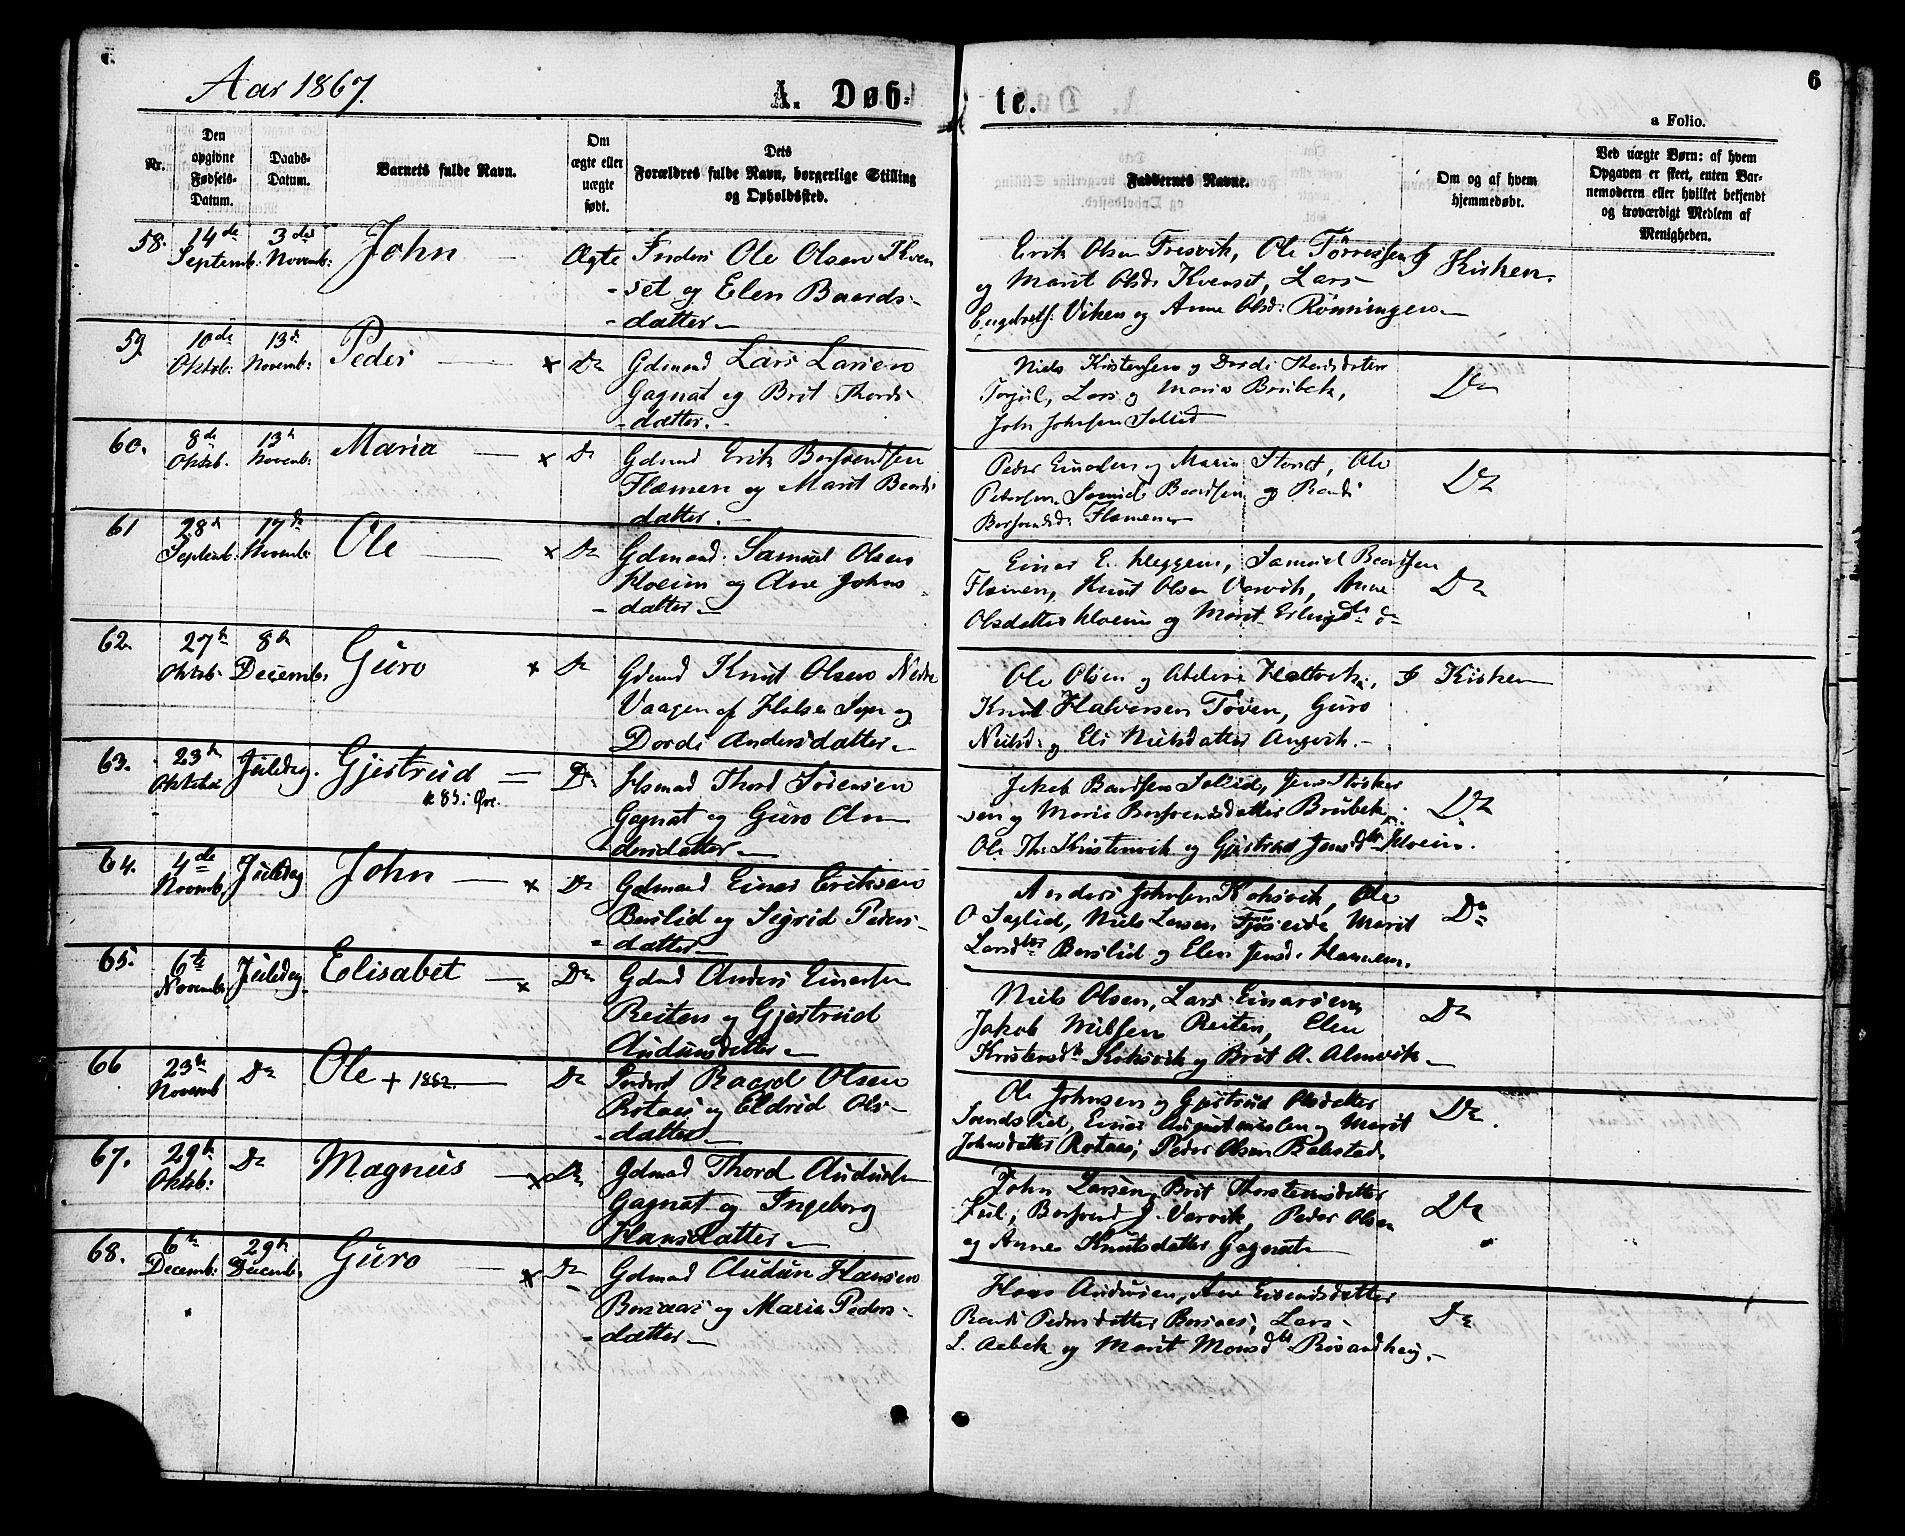 Aar 1867.
A. Døb-
te.
6
a Folio.
Nr.
Den opgivne Fødsels-Datum.
Daabs-Datum.
Barnets fulde Navn.
Om ægte eller uægte født.
Dets Forældres fulde Navn, borgerlige Stilling og Opholdssted.
Faddernes Navne.
Om og af hvem hjemmedøbt.
Ved uægte Børn: af hvem Opgaven er skeet, enten Barnemoderen eller hvilket bekjendt og troværdigt Medlem af Menigheden.
58. 14de Septemb: 3die Novemb: John Ægte Inders Ole Olsen Kven
-set og Elen Baards-
-datter
Erik Olsen Fresvik, Ole Tørressen
og Marit Olsd: Kvenset, Lars
Engebretss: Viken og Anne Olsd: Rønningen
I Kirken.
59. 10de Oktob: 13de Novemb: Peder x Do Gdmand Lars Larsen
Gagnat og Brit Thords-
-datter.
Niels Kristensen og Dordi Thordsdatter
Lars og Maria Brubek,
John Johnsen Sollid
Do
60. 8de Oktob. 13de Novemb: Maria x Do Gdmd Erik Bersvendsen
Flemen og Marit Baards
datter.
Peder Einersen og Maria Storset, Ole
Petersen, Samuel Baardsen og Randi
Bersvendsd: Flemen
Do
61 28de Septemb: 17de Novemb: Ole x Do Gdmand. Samuel Olsen
Kloeim og Ane Johns
-datter
Einer E. Heggem, Samuel Baardsen
Flemen, Knut Olsen Varvik, Anne
Olsdatter Kloeim og Marit Erlingsdtr do
Do
62. 27de Oktob. 8de Decemb: Guro x Do Gdmd Knut Olsen Nedre
Vaagen af Halse Sogn og
Dordi Andersdatter
Ole Olsen og
Knut Halvorsen Tøven, Guro
Nielsd: og Eli Nielsdatter Angvik.
I Kirken
63. 23de Oktober Juledag. Gjertrud Do
k 85 i Øre.
Hsmand Thord Sørensen
Gagnat og Guro An
dersdatter
Jakob Baardsen Sollid, Jens
sen og Marie Bersvendsdatter Brubek,
Ole Th: Kristenvik og Gjertrud Jensdtr Kloeim.
Do
64. 4de Novemb. Juledag John x Do Gdmand Einer Eriksen
Berslid og Sigrid Peders-
-datter
Anders Johnsen Koksvik, Ole
O Saglid, Niels Larsen Tjøseide, Marit
Larsdtr Berslid og Elen Jensd: Hannem.
Do
65. 6te Novemb: Juledag Elisabet x Do Gdmd Anders Einersen
Reiten og Gjertrud
Audunsdatter
Niels Olsen, Lars Einarsen
Jakob Nielsen Reiten, Elen
Kristensdtr Koksvik og Brit A. Almvik
Do
66 23de Novemb Do Ole + 1882. Do Baard Olsen
Rotaas og Eldrid Ols-
-datter
Ole Johnsen og Gjertrud Olsdatter
Sandslid, Einer Augustinussen og Marit
Johnsdatter Rotaas, Peder Olsen
Do.
67. 29de Oktob: Do Magnus x Do Gdmand Thord Audunsen
Gagnat og Ingeborg
Hansdatter
John Larsen, Brit Thorstensdatter
Bersvend J. Varvik, Peder Olsen
og Anne Knutsdatter Gagnat
Do
68. 6te Decemb: 29de Decemb: Guro x Do Gdmand Audun Hansen
Bersaas og Maria Peders-
-datter
Hans Andersen, Ane Eivendsdatter
Randi Pedersdatter Bersaas, Lars
L. Aebek og Marit Monsdtr Risandhaug.
Do